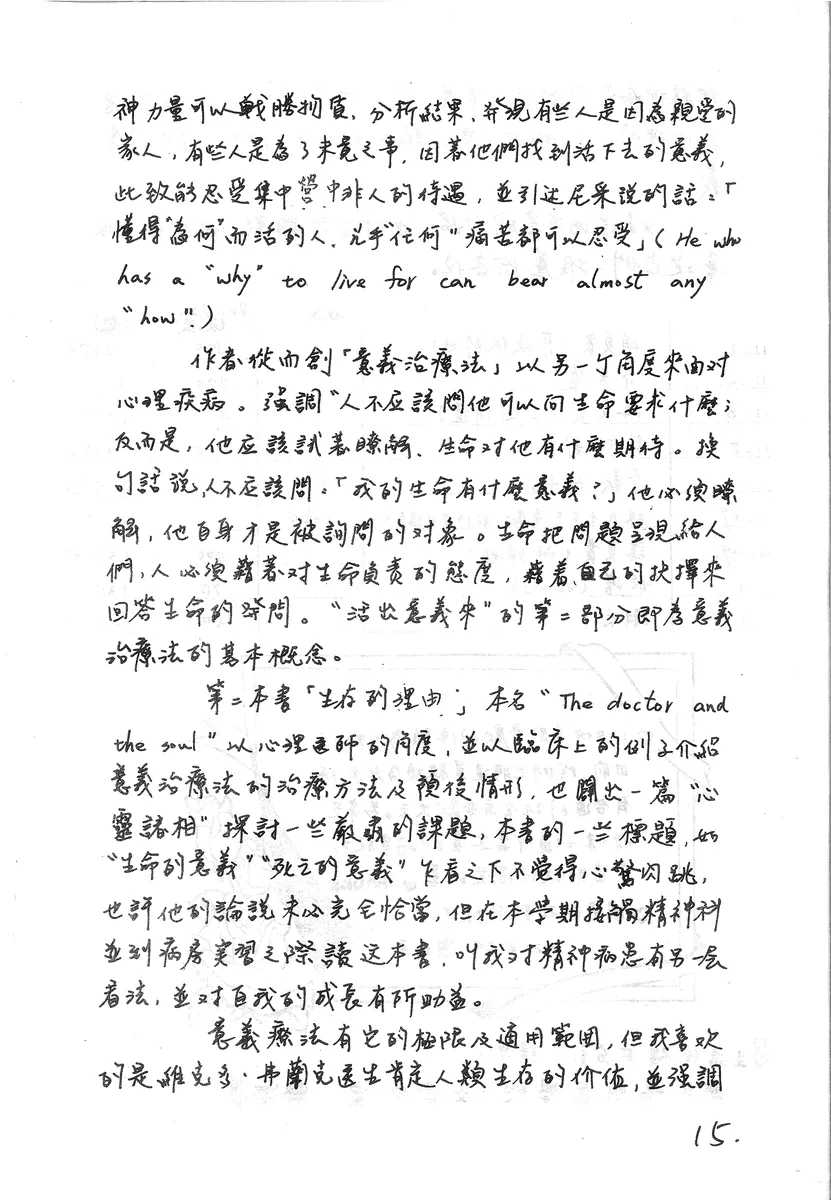 神力量可以戰勝物質, 分析結果, 發現有些人是因為親愛的
家人, 有些人是為了未竟之事, 因著他們找到活下去的意義,
此致能忍受集中營中非人的待遇, 並引述尼采說的話:「
懂得"為何"而活的人, 幾乎"任何"痛苦都可以忍受」( He who
has a "why" to live for can bear almost any
"how".)
作者從而創「意義治療法」以另一个角度來面对
心理疾病。強調"人不应該問他可以向生命要求什麼;
反而是, 他应該試著瞭解、生命对他有什麼期待。換
句話說,人不应該問:「我的生命有什麼意義?」他必須瞭
解, 他自身才是被詢問的对象。生命把問題呈現給人
們, 人必須藉著对生命負責的態度, 藉着自己的抉擇來
回答生命的疑問。"活出意義來"的第二部分即為意義
治療法的基本概念。
第二本書「生存的理由」本名"The doctor and
the soul"以心理医師的角度, 並以臨床上的例子介紹
意義治療法的治療方法及預後情形, 也闢出一篇"心
靈諸相"探討一些嚴肅的課題, 本書的一些標題, 如
"生命的意義""死亡的意義"乍看之下不覺得心驚肉跳,
也許他的論說未必完全恰當, 但在本學期接觸精神科
並到病房实習之際讀这本書, 叫我对精神病患有另一层
看法, 並对自我的成長有所助益。
意義療法有它的極限及適用範圍, 但我喜欢
的是維克多·弗蘭克医生肯定人類生存的价值, 並強調
15.